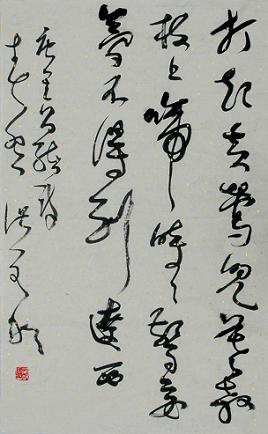 打起黄鶯兒莫教
枝上啼々時驚妾
夢不得到遼西
唐金昌緒